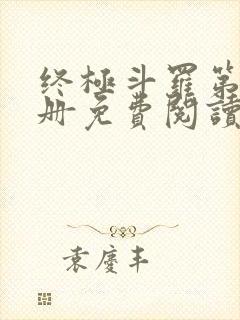 终極斗羅第
册免費閱讀
袁慶丰